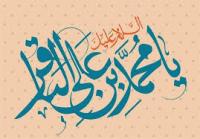 السلام علیک
یا محمد بن علی الباقر